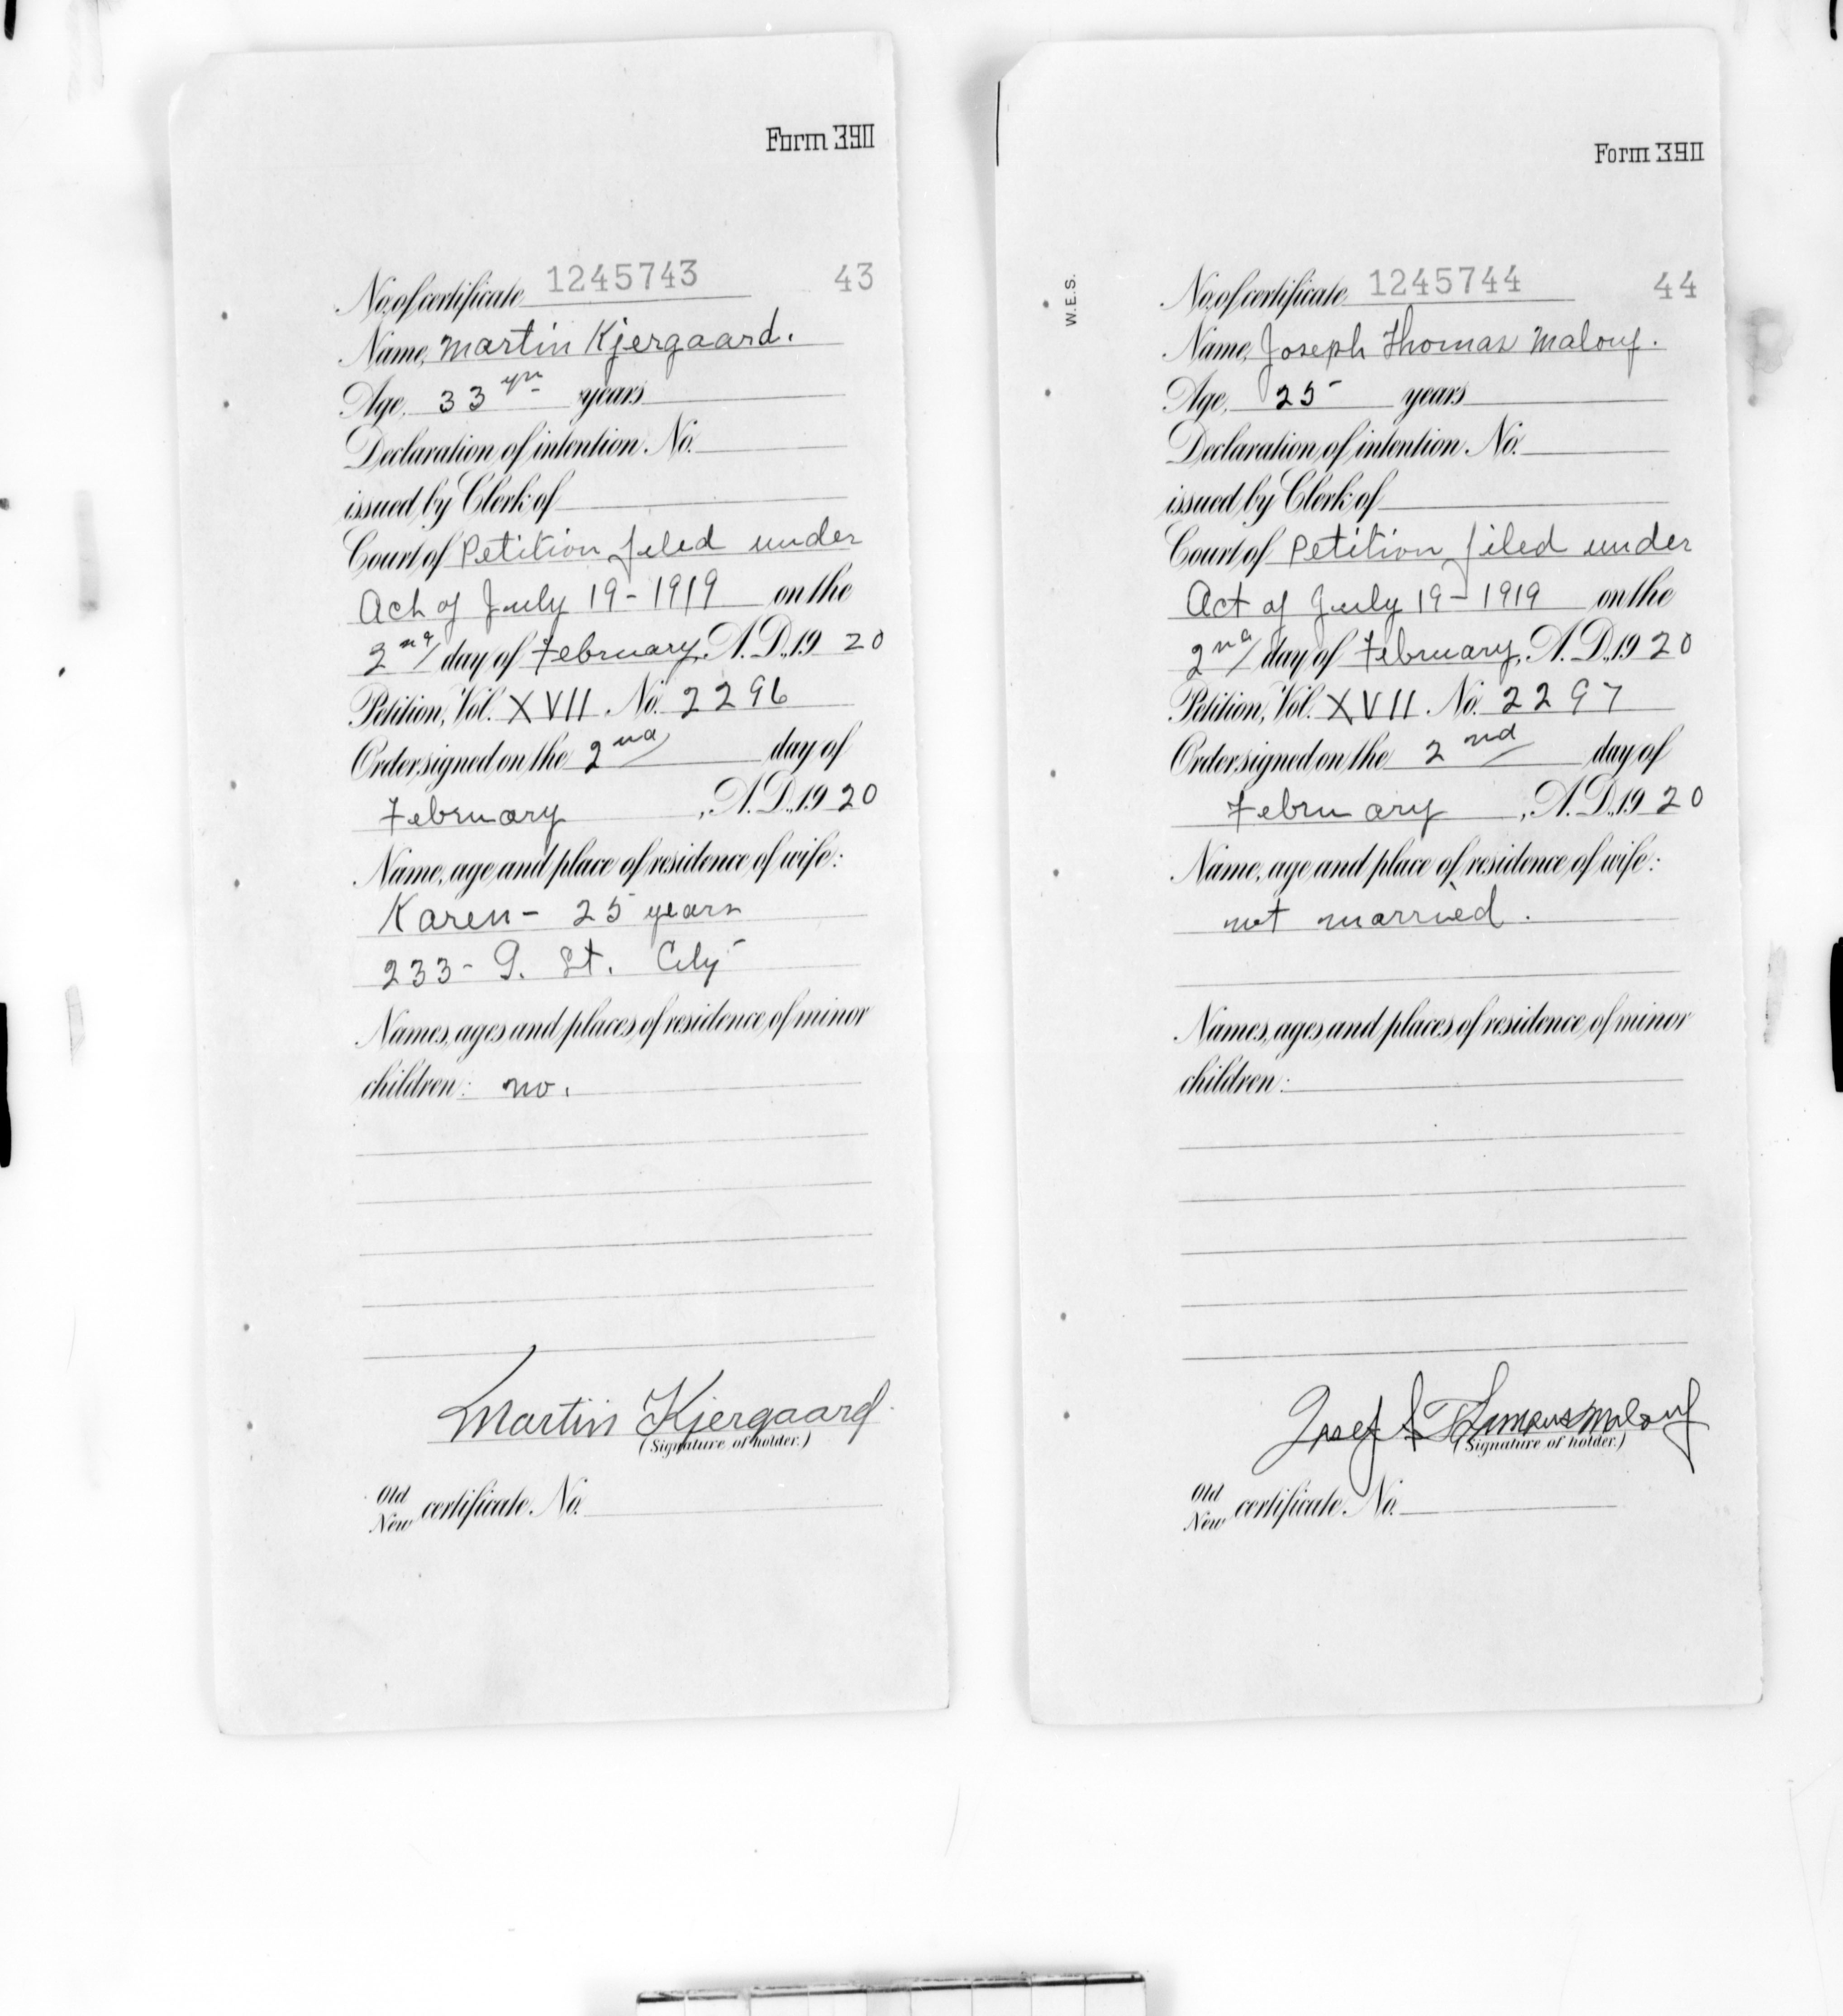 Form 390
No. of certificate 1245743 43
Name, Martin Kjergaard.
Age, 33 yrs years
Declaration of intention. No.
issued by Clerk of
Court of Petition filed under
Act of July 19 - 1919 on the
2nd day of February, A.D., 1920
Petition, Vol. XVII No. 2296
Order signed on the 2nd day of
February, A.D., 1920
Name, age and place of residence of wife:
Karen - 25 years
233 - G. St. City
Names, ages and places of residence of minor
children: no.
Martin Kjergaard
(Signature of holder.)
Old
New certificate. No.
Form 390
W.E.S.
No. of certificate 1245744 44
Name, Joseph Thomas Malouf.
Age, 25 years
Declaration of intention. No.
issued by Clerk of
Court of Petition filed under
Act of July 19 - 1919 on the
2nd day of February, A.D., 1920
Petition, Vol. XVII No. 2297
Order signed on the 2nd day of
February, A.D., 1920
Name, age and place of residence of wife:
not married.
Names, ages and places of residence of minor
children:
Josef Malouf
(Signature of holder.)
Old
New certificate. No.